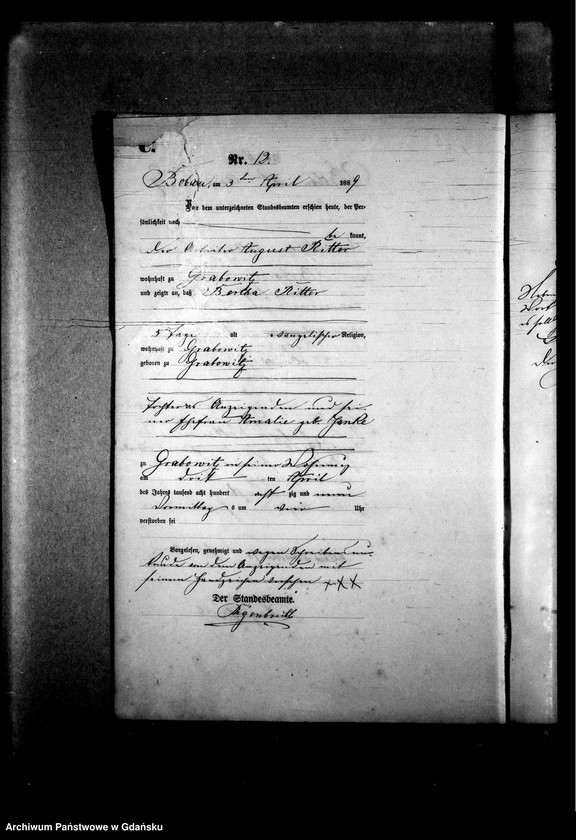 C.
Nr. 12.
am 3ten April 1889
Vor dem unterzeichneten Standesbeamten erschien heute, der Per-
sönlichkeit nach
be kannt,
der Arbeiter August Ritter
wohnhaft zu Grabowitz
und zeigte an, daß Bertha Ritter
5 Tage alt evangelischer Religion,
wohnhaft zu Grabowitz
geboren zu Grabowitz
Tochter des Anzeigenden und sei-
ner Ehefrau Amalie geb. Janke
zu Grabowitz in seiner Wohnung
am dritten April
des Jahres tausend acht hundert acht zig und neun
Vormittags um vier Uhr
verstorben sei
Vorgelesen, genehmigt und wegen Schreibensun-
kunde von dem Anzeigenden mit
seinem Handzeichen versehen +++
Der Standesbeamte.
Archiwum Państwowe w Gdańsku